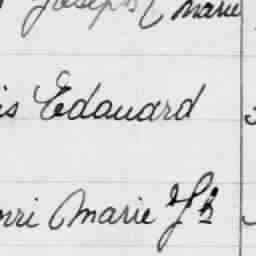 Joseph Marie
is Edouard
nri Marie Jh